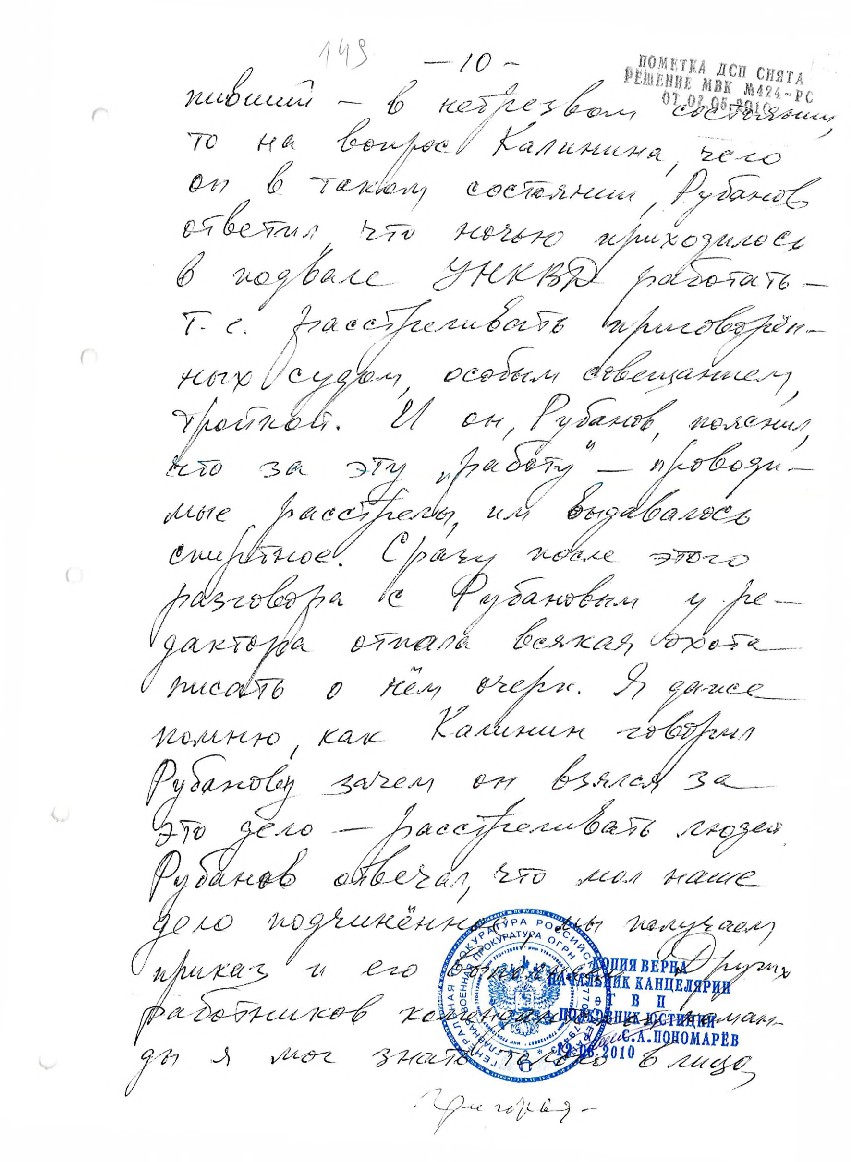 149
— 10 —
ПОМЕТКА ДСП СНЯТА
РЕШЕНИЕ МВК №424-РС
ОТ 02.06.2010
пивший — в нетрезвом состоянии,
то на вопрос Калинина, чего
он в таком состоянии, Рубанов
ответил, что ночью приходилось
в подвале УНКВД работать —
т. е. расстреливать приговорён-
ных судом, особым совещанием,
тройкой. И он, Рубанов, пояснил,
что за эту „работу" — проводи-
мые расстрелы, им выдавалось
спиртное. Сразу после этого
разговора с Рубановым у ре-
дактора отпала всякая охота
писать о нём очерк. Я даже
помню, как Калинин говорил
Рубанову зачем он взялся за
это дело — расстреливать людей.
Рубанов отвечал, что мол наше
дело подчинённое, мы получаем
приказ и его Других
работников коман-
ды я мог знать только в лицо,
КОПИЯ ВЕРНА
НАЧАЛЬНИК КАНЦЕЛЯРИИ
Г В П
ПОЛКОВНИК ЮСТИЦИИ
С.А.ПОНОМАРЁВ
.06.2010
ГЕНЕРАЛЬНАЯ ПРОКУРАТУРА РОССИЙСКОЙ
ПРОКУРАТУРА ОГРН